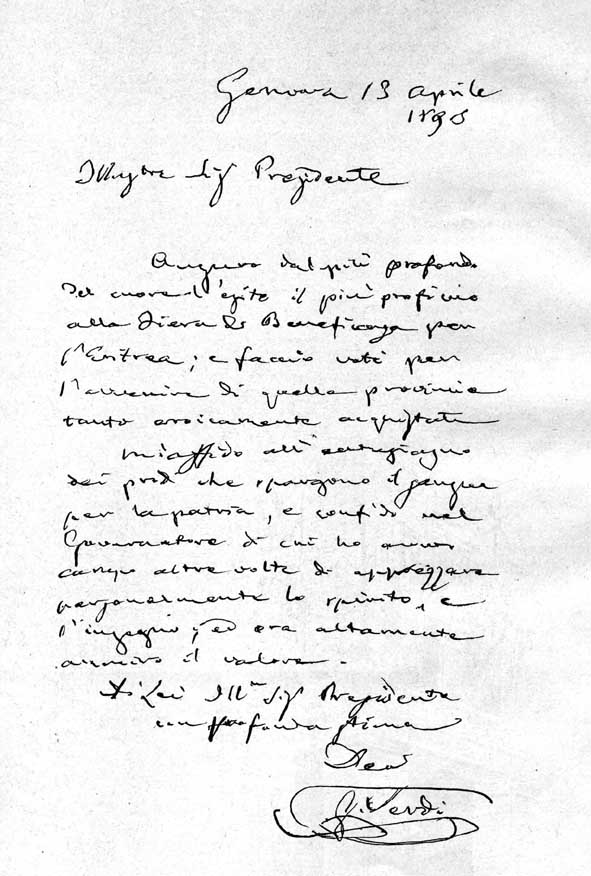 Genova 13 Aprile
189
Illustre Sigr Presidente
Auguro dal più profondo
del cuore l'esito il più proficuo
alla Fiera di Beneficenza per
l'Eritrea; e faccio voti per
l'avvenire di quella provincia
tanto eroicamente acquistata
Mi affido all'
dei prodi che spargono il sangue
per la patria, e confido nel
Governatore di cui ho avuto
campo altre volte di apprezzare
personalmente lo spirito, e
l'ingegno; ed ora altamente
ammiro il valore.
Di Lei Illm Sigr Presidente
con profonda stima
Dev
G. Verdi